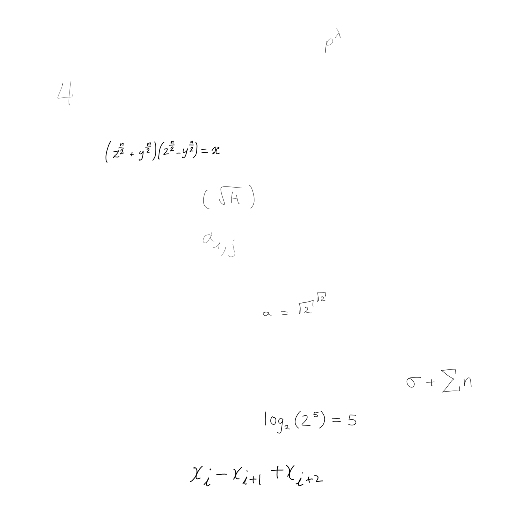 p^λ
4
(z^{n/2} + y^{n/2})(z^{n/2} - y^{n/2}) = x
(√k)
a_{i,j}
a = √2^{√2}
σ + ∑n
log_2(2^5) = 5
x_i - x_{i+1} + x_{i+2}